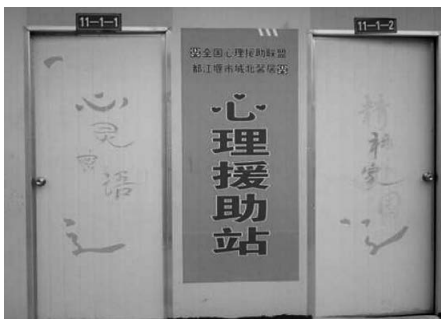 11-1-1
心灵
语
全国心理援助联盟
都江堰市城北馨居
心理援助站
11-1-2
精神家园